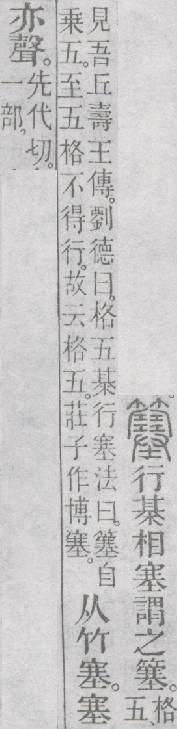 簺行棊相塞謂之簺。格五、
見吾丘壽王傳。劉德曰。格五棊行塞法曰。簺自
乘五。至五格不得行。故云格五。莊子作博塞。
从竹塞。塞
亦聲。先代切。
一部。